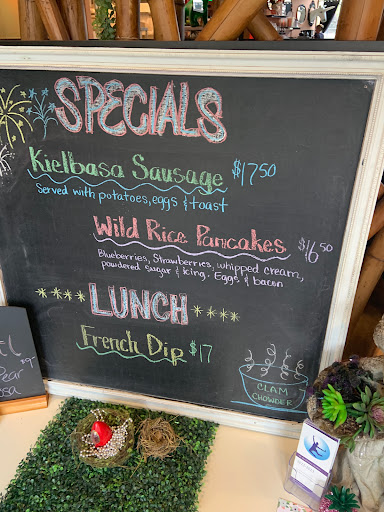 SPECIALS
Kielbasa Sausage $17.50
Served with potatoes, eggs & toast
Wild Rice Pancakes $16.50
Blueberries, Strawberries, whipped cream,
powdered sugar & icing. Eggs & bacon
**** LUNCH ****
French Dip $17
CLAM
CHOWDER
$9
Pear